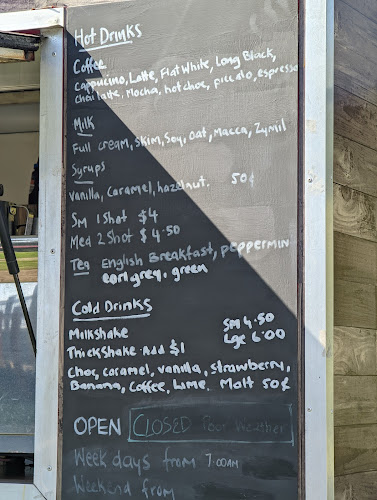 Hot Drinks
Coffee
Cappucino, Latte, Flat White, Long Black,
Chai latte, Mocha, hot choc, piccalo, espresso
Milk
Full cream, Skim, Soy, Oat, Macca, Zymil
Syrups
Vanilla, Caramel, hazelnut. 50¢
Sm 1 Shot $4
Med 2 Shot $4.50
Tea English Breakfast, peppermin
earl grey, green
Cold Drinks
Milkshake Sm 4.50
Thickshake Add $1 Lge 6.00
Choc, caramel, vanilla, strawberry,
Banana, Coffee, Lime. Malt 50¢
OPEN CLOSED Poor Weather
Week days from 7:00AM
Weekend from